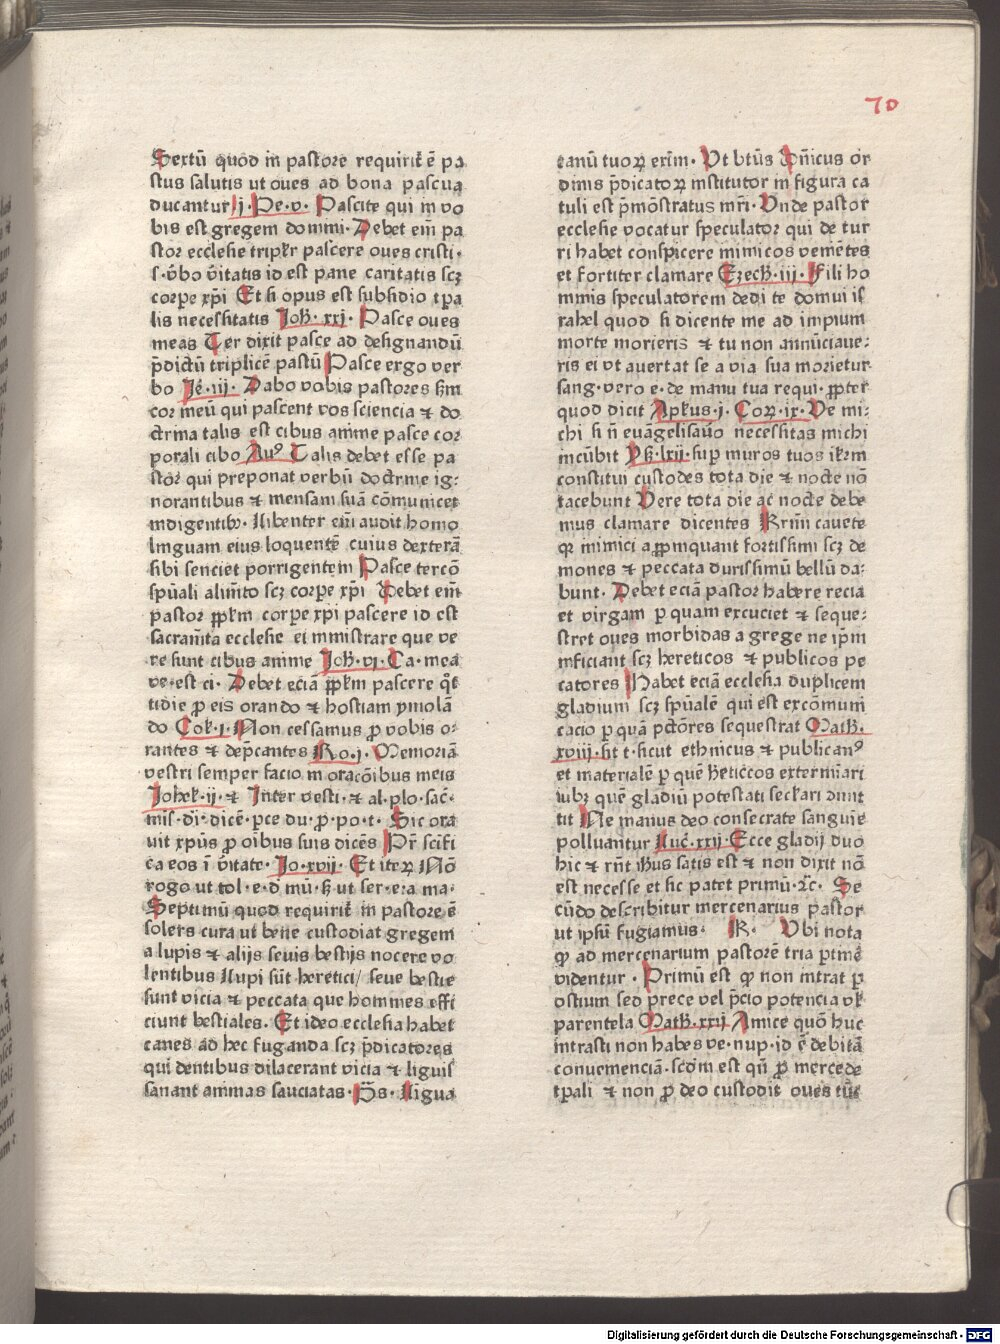 70
Sextū quod in pastore requirit̄ ē pa
stus salutis ut oues ad bona pascua
ducantur ij. Pe. v. Pascite qui in vo
bis est gregem domini. Debet eni̅ pa
stor ecclesie triplr̄ pascere oues cristi.
s. v̄bo v̄itatis id est pane caritatis scꝫ
corpe xp̄i Et si opus est subsidio tp̄a
lis necessitatis Joh̄. xxj. Pasce oues
meas Ter dixit pasce ad designandū
p̄dictū triplicē pastū Pasce ergo ver
bo Je͂. iij. Dabo vobis pastores scd̄m
cor meū qui pascent vos sciencia ⁊ do
ctrina talis est cibus anime pasce cor
porali cibo Auꝰ Talis debet esse pa
stor qui preponat verbū doctrine ig-
norantibus ⁊ mensam suā cōmunicet
indigentibꝫ. Libenter eni̅ audit homo
linguam eius loquentē cuius dexterā
sibi senciet porrigentem Pasce tercō
spūali alimēto scꝫ corpe xp̄i Debet eni̅
pastor ppl̄m corpe xp̄i pascere id est
sacram̄ta ecclesie ei ministrare que ve
re sunt cibus anime Joh̄. vi. Ca. mea
ve. est ci. Debet eciā ppl̄m pascere qͦt
tidie ꝓ eis orando ⁊ hostiam ymolā
do Col. i. Non cessamus ꝓ vobis o-
rantes ⁊ dep̄cantes Ro. j. Memoriā
vestri semper facio in oracōibus meis
Johel. ij. ⁊ Inter vesti. ⁊ al. plo. sac̄.
mi̅s. di̅. dicē. pce du. ꝓ. po. t. Sic ora
uit xpūs ꝓ oībus suis dicēs Pr̄ sc̄ifi
ca eos ī v̄itate. Jo. xvij. Et iterꝝ Nō
rogo ut tol. e. d mū. sꝫ ut ser. e. ra ma.
Septimū quod requirit̄ in pastore ē
solers cura ut bene custodiat gregem
a lupis ⁊ alijs seuis bestijs nocere vo
lentibus Lupi sūt heretici/ seue bestie
sunt vicia ⁊ peccata que homines effi
ciunt bestiales. Et ideo ecclesia habet
canes ad hec fuganda scꝫ p̄dicatores
qui dentibus dilacerant vicia ⁊ liguis
sanant animas sauciatas. P̄s. Ligua
canū tuorꝫ exim̄. Ut btūs Dn̄icus or
dinis p̄dicatorꝝ institutor in figura ca
tuli est p̄mōstratus mr̄i. Unde pastor
ecclesie vocatur speculator qui de tur
ri habet conspicere inimicos veniētes
et fortiter clamare Ezech̄. iij. Fili ho
minis speculatorem dedi te domui is
rahel quod si dicente me ad impium
morte morieris ⁊ tu non annūciaue-
ris ei vt auertat se a via sua morietur
sang. vero e. de manu tua requi. ꝓpter
quod dicit Aplūs. j. Corꝝ. ix. Ve mi-
chi si n̄ euāgelisauo necessitas michi
incūbit Ys̄. lxij. sup muros tuos ihr̄lm
constitui custodes tota die ⁊ nocte nō
tacebunt Vere tota die ac nocte debe
mus clamare dicentes Krm̄i cauete
qꝛ inimici appinquant fortissimi scꝫ de
mones ⁊ peccata durissimū bellū da-
bunt. Debet eciā pastor habere recia
et virgam p quam excuciet ⁊ seque-
stret oues morbidas a grege ne ip̄m
inficiant scꝫ hereticos ⁊ publicos pe
catores Habet eciā ecclesia duplicem
gladium scꝫ spūalē qui est excōmuni
cacio p quā pctōres sequestrat Math̄.
xviij. sit t. sicut ethnicus ⁊ publicanꝰ
et materialē p quē h̄eticos extermīari
iubꝫ quē gladiū potestati secl̄ari ɔmit
tit Ne manus deo consecrate sanguie
polluantur Luc̄. xxij. Ecce gladij duo
hic ⁊ rn̄t ih̄us satis est ⁊ non dixit nō
est necesse et sic patet primū. ⁊c̄. Se
cūdo describitur mercenarius pastor
ut ipsū fugiamus. K. Ubi nota
ꝙ ad mercenarium pastorē tria ptinē
videntur. Primū est ꝙ non intrat p
ostium sed prece vel p̄cio potencia vl̄
parentela Math̄. xxij Amice quō huc
intrasti non habēs ve. nup. id ē debitā
conueniencia. scdm est qn̄ ꝓ mercede
tp̄ali ⁊ non ꝓ deo custodit oues tūc
Digitalisierung gefördert durch die Deutsche Forschungsgemeinschaft - DFG